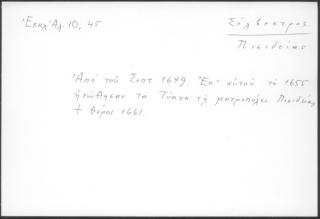 Ἐκκλ. Ἀλ. 10, 45
Σίλβεστρος
Πισιδείας
Ἀπὸ τοῦ Σεπτ 1649. Ἐπ' αὐτοῦ τὸ 1655
ἡνώθησαν τὰ Τύανα τῇ μητροπόλει Πισιδείας
† θέρος 1661.